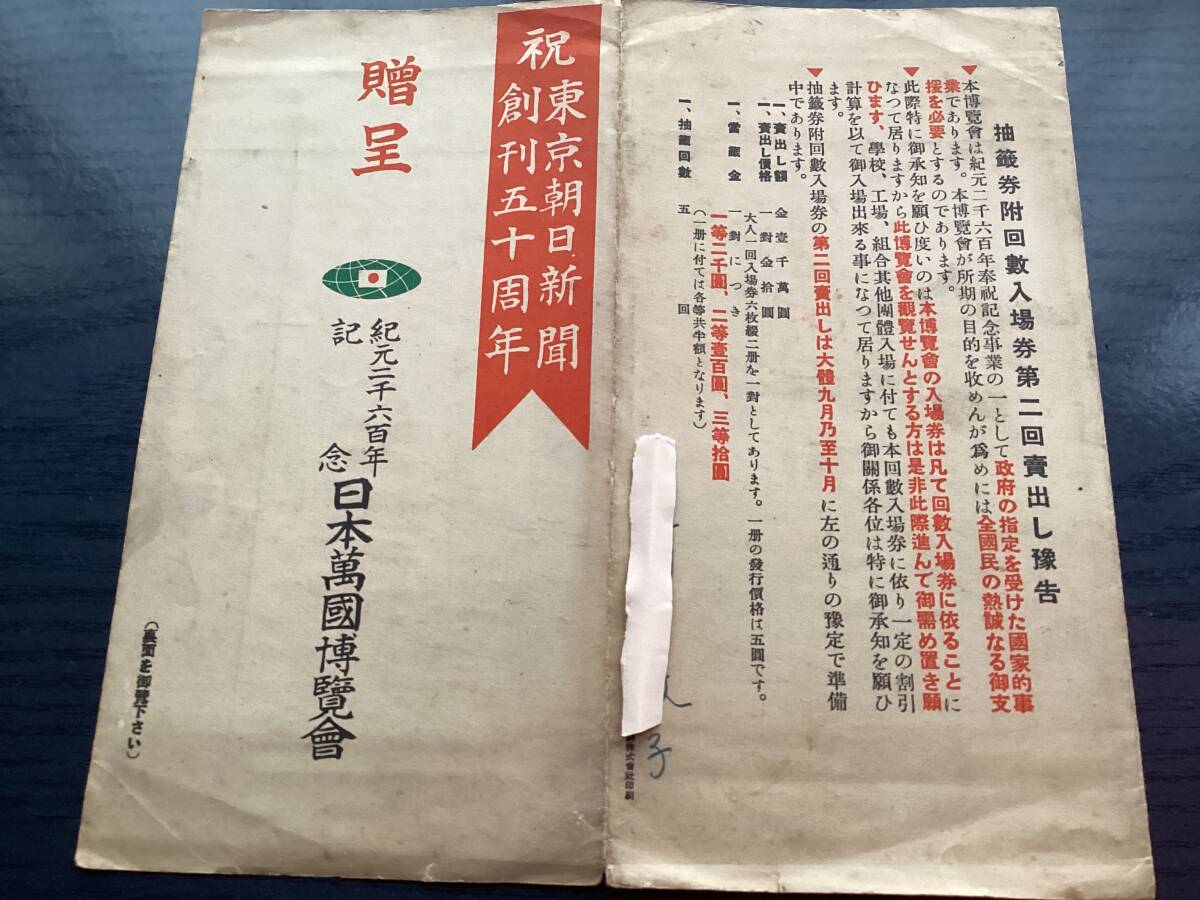 抽籤券附回數入場券第二回賣出し豫告
▼本博覽會は紀元二千六百年奉祝記念事業の一として政府の指定を受けた國家的事
業であります。本博覽會が所期の目的を收めんが爲めには全國民の熱誠なる御支
援を必要とするのであります。
▼此際特に御承知を願ひ度いのは本博覽會の入場券は凡て回數入場券に依ることに
なつて居りますから此博覽會を觀覽せんとする方は是非此際進んで御需め置き願
ひます、學校、工場、組合其他團體入場に付ても本回數入場券に依り一定の割引
計算を以て御入場出來る事になつて居りますから御關係各位は特に御承知を願ひ
ます。
▼抽籤券附回數入場券の第二回賣出しは大體九月乃至十月に左の通りの豫定で準備
中であります。
一、賣出し額 金壹千萬圓
一、賣出し價格 一對金拾圓
大人一回入場券六枚綴二册を一對としてあります。一册の發行價格は五圓です。
一、當籤金 一對につき
一等二千圓、二等壹百圓、三等拾圓
(一册に付ては各等共半額となります)
一、抽籤回數 五回
子
株式會社印刷
祝東京朝日新聞
創刊五十周年
贈呈
紀元二千六百年
記念
日本萬國博覽會
(裏面を御覽下さい)